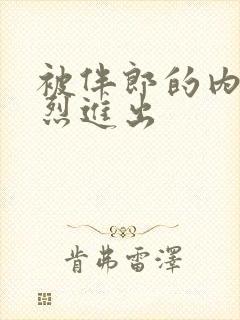 被伴郎的内
烈进出
肯弗雷泽